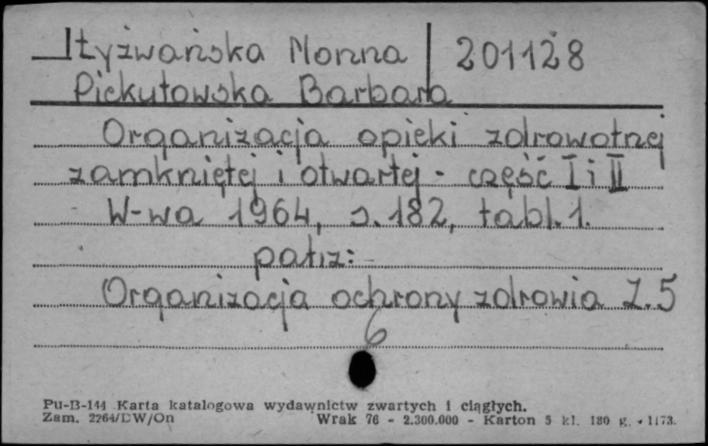 Iłyżwańska Monna 201128
Piekutowska Barbara
Organizacja opieki zdrowotnej
zamkniętej i otwartej - część I i II
W-wa 1964, s. 182, tabl. 1.
patrz:
Organizacja ochrony zdrowia Z. 5
6
Pu-B-144 Karta katalogowa wydawnictw zwartych i ciągłych.
Zam. 2264/DW/On Wrak 76 - 2.300.000 - Karton 5 kl. 180 g.